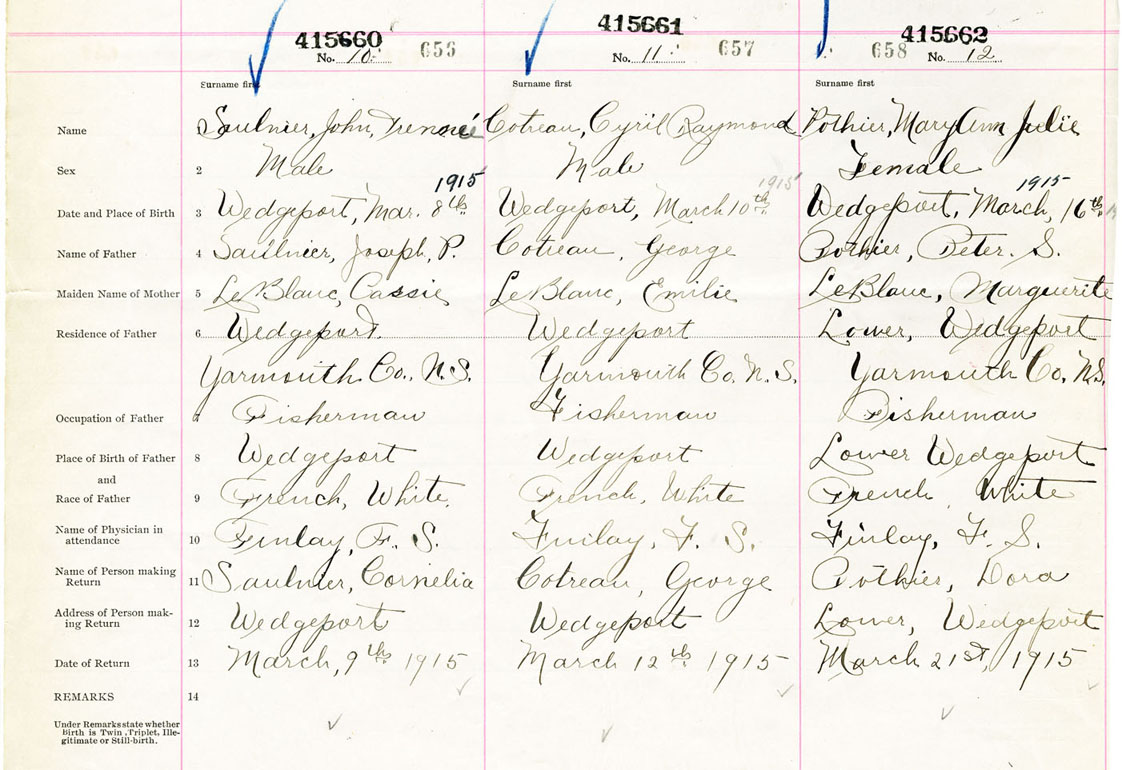 415660 415661 415662
No. 10. 656 No. 11. 657 658 No. 12
Surname first Surname first Surname first
Name 1 Saulnier, John, Cotreau, Cyril Raymond Pothier, Mary Ann Julie
Sex 2 Male Male Female
1915 1915 1915
Date and Place of Birth 3 Wedgeport, Mar. 8th Wedgeport, March 10th Wedgeport, March, 16th
Name of Father 4 Saulnier, Joseph, P. Cotreau, George Pothier, Peter. S.
Maiden Name of Mother 5 LeBlanc, Cassie LeBlanc, Emilie LeBlanc, Marguerite
Residence of Father 6 Wedgeport. Wedgeport Lower, Wedgeport
Yarmouth Co., N.S. Yarmouth Co. N.S. Yarmouth Co. N.S.
Occupation of Father 7 Fisherman Fisherman Fisherman
Place of Birth of Father 8 Wedgeport Wedgeport Lower Wedgeport
and
Race of Father 9 French, White. French, White French White
Name of Physician in
attendance 10 Finlay, F. S. Finlay, F. S. Finlay, F. S.
Name of Person making
Return 11 Saulnier, Cornelia Cotreau, George Pothier, Dora
Address of Person mak-
ing Return 12 Wedgeport Wedgeport Lower, Wedgeport
Date of Return 13 March, 9th 1915 March 12th 1915 March 21st, 1915
REMARKS 14
Under Remarks state whether
Birth is Twin, Triplet, Ille-
gitimate or Still-birth.